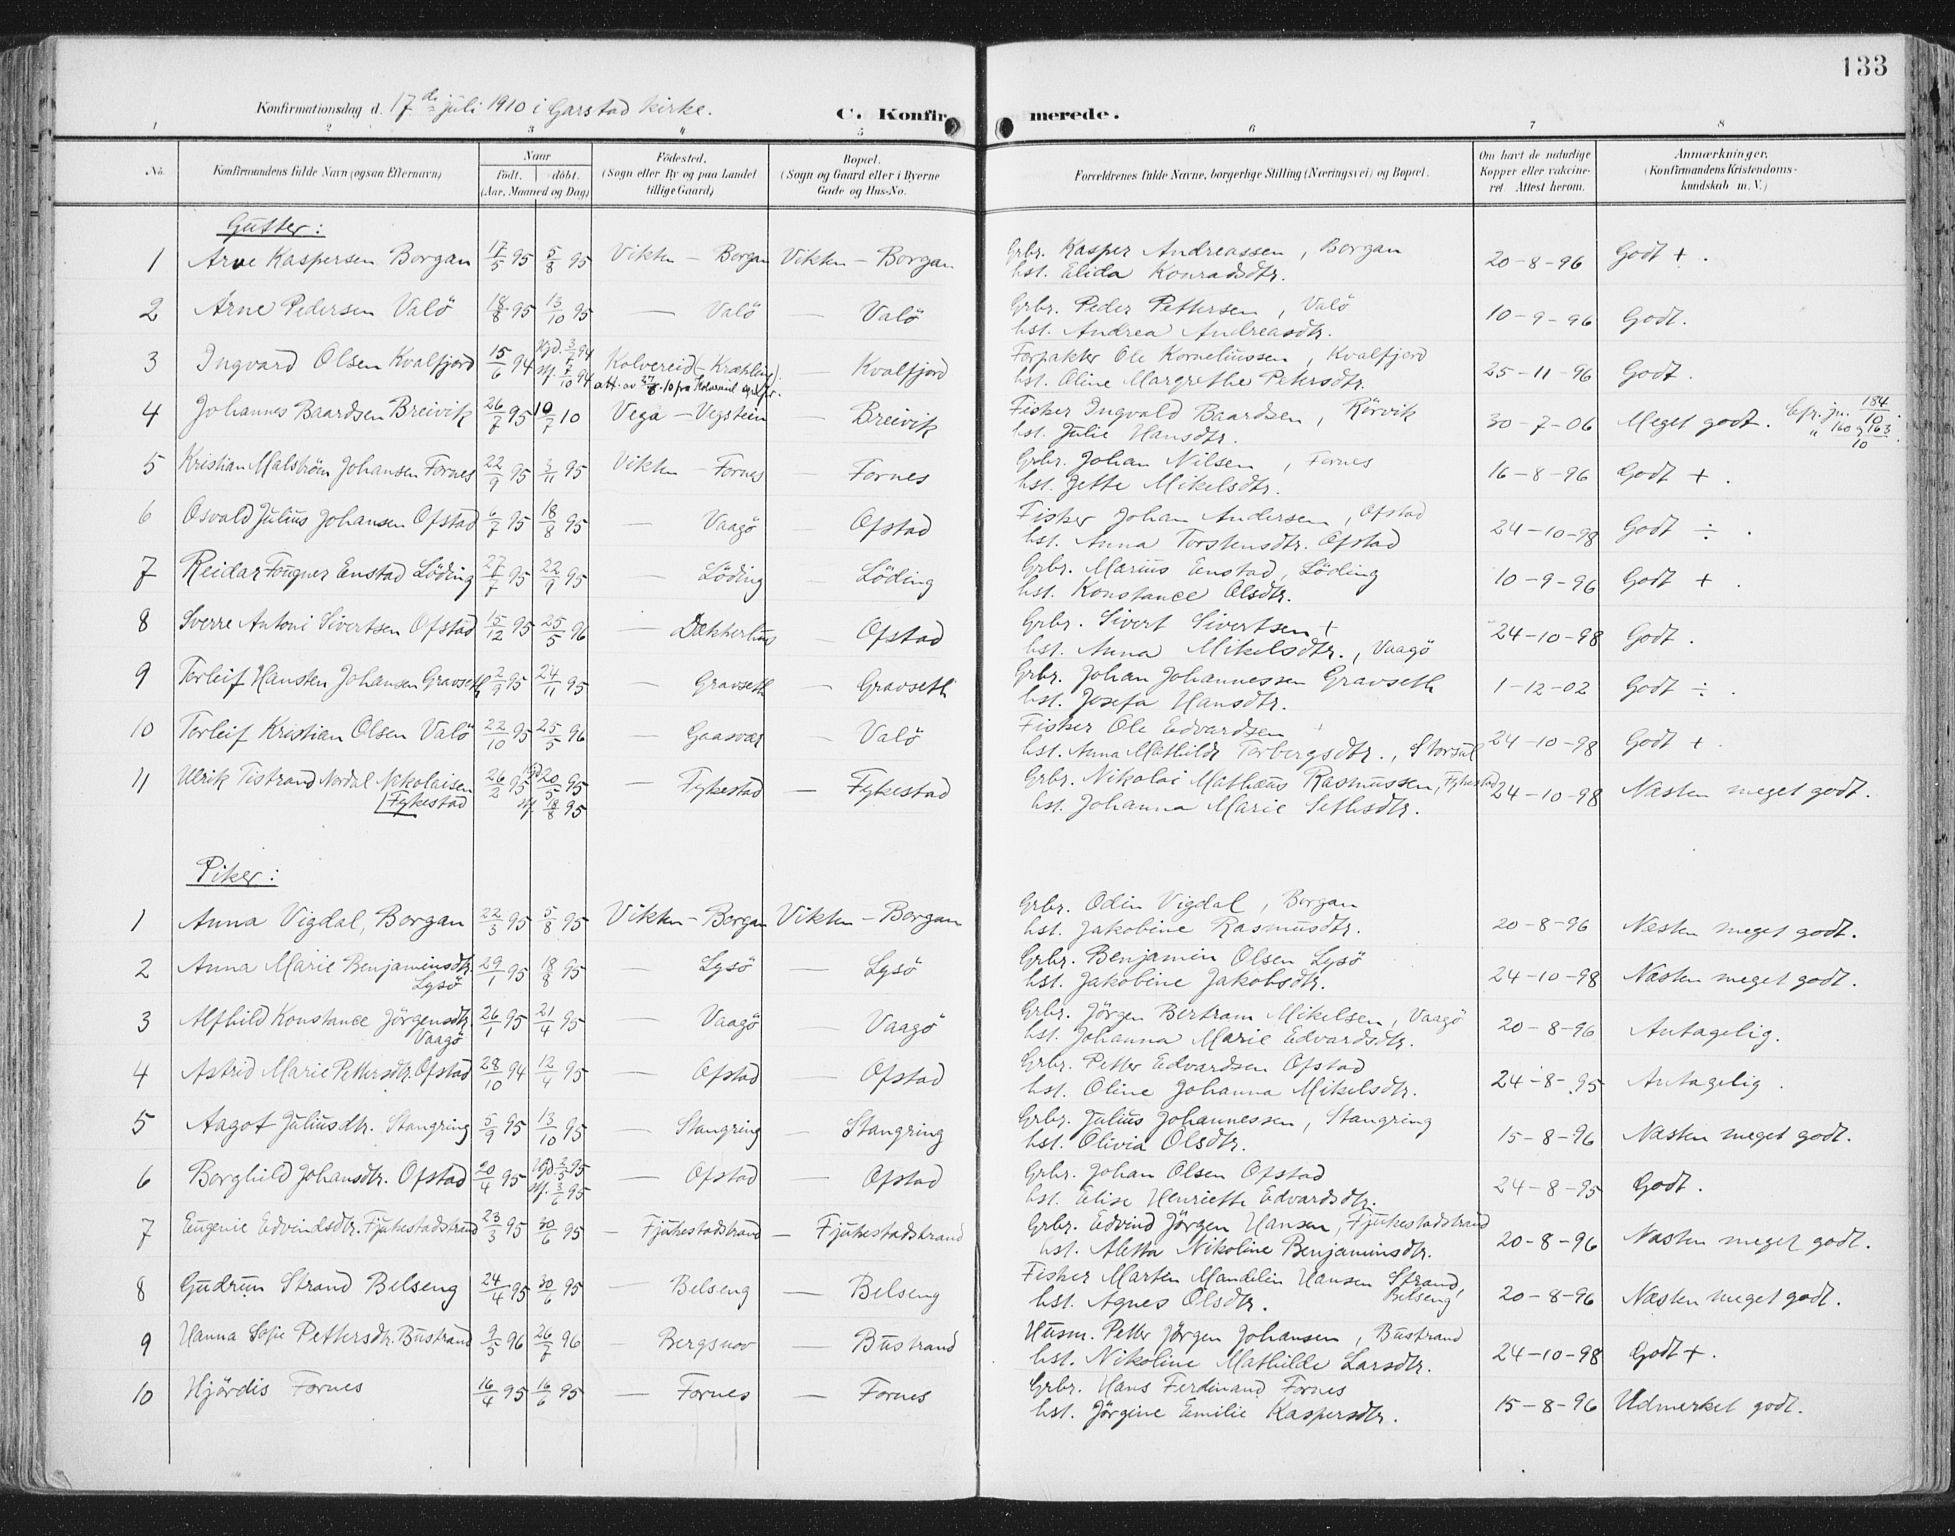 133
Konfirmationsdag d. 17de juli 1910 i Garstad kirke.
C. Konfirmerede.
1 2 3 " 5 6 7 8
No. Konfirmandens fulde Navn (ogsaa Efternavn) Naar født. døbt. (Aar, Maaned og Dag) Fødested. (Sogn eller By og paa Landet tillige Gaard) Bopæl. (Sogn og Gaard eller i Byerne Gade og Hus-No. Forældrenes fulde Navne, borgerlige Stilling (Næringsvei) og Bopæl. Om havt de naturlige Kopper eller vakcineret. Attest herom. Anmærkninger. (Konfirmandens Kristendomskundskab m. V.)
Gutter:
1 Arve Kaspersen Borgan 17/5 95 5/8 95 Vikten – Borgan Vikten – Borgan Grbr. Kasper Andreassen, Borgan hst. Elida Konradsdtr. 20-8-96 Godt +.
2 Arne Pedersen Valö 18/8 95 13/10 95 — Valö — Valö Grbr. Peder Pettersen, Valö hst. Andrea Andreasdtr. 10-9-96 Godt.
3 Ingvard Olsen Kvalfjord 15/6 94 Hjd. 3/7 94 st. 7/10 94 Kolvereid (– Kræklingö) att. av 27/8 10 fra — Kvalfjord Forpakter Ole Korneliussen, Kvalfjord hst. Oline Margrethe Petersdtr. 25-11-96 Godt.
4 Johannes Baardsen Breivik 26/7 95 10/7 10 Vega – Vegstein — Breivik Fisker Ingvald Baardsen, Rörvik hst. Julie Hansdtr. 30-7-06 Meget godt. Cfr. jn. 184/10 " 160 og 163/10.
5 Kristian Malström Johansen Fornes 22/9 95 3/11 95 Vikten – Fornes Fornes Grbr. Johan Nilsen, Fornes hst. Jette Mikelsdtr. 16-8-96 Godt +.
6 Osvald Julius Johansen Ofstad 6/7 95 18/8 95 — Vaagö Ofstad Fisker Johan Andersen, Ofstad hst. Anna Torstensdtr. Ofstad 24-10-98 Godt ÷.
7 Reidar Fougner Enstad Löding 27/7 95 22/9 95 — Löding — Löding Grbr. Marius Enstad, Löding hst. Konstance Olsdtr. 10-9-96 Godt +.
8 Sverre Antoni Sivertsen Ofstad 15/12 95 25/5 96 — Dækkerhus — Ofstad Grbr. Sivert Sivertsen + hst. Anna Mikelsdtr., Vaagö 24-10-98 Godt.
9 Torleif Hansten Johansen Gravseth 2/9 95 24/11 95 — Gravseth — Gravseth Grbr. Johan Johannessen Gravseth hst. Josefa Hansdtr. 1-12-02 Godt ÷.
10 Torleif Kristian Olsen Valö 22/10 95 25/5 96 — Gaasvær — Valö Fisker Ole Edvardsen + hst. Anna Mathilde Torbergsdtr., Storsul 24-10-98 Godt +.
11 Ulrik Tistrand Nordal Nikolaisen Fykestad 26/2 95 Hjd 20/5 95 st. 18/8 95 — Fykestad — Fykestad Grbr. Nikolai Mathæus Rasmussen, Fykestad hst. Johanna Marie Sethsdtr. 24-10-98 Næsten meget godt.
Piker:
1 Anna Vigdal, Borgan 22/3 95 5/8 95 Vikten – Borgan Vikten – Borgan Grbr. Odin Vigdal, Borgan hst. Jakobine Rasmusdtr. 20-8-96 Næsten meget godt.
2 Anna Marie Benjaminsdtr. Lysö 29/1 95 18/8 95 — Lysö — Lysö Grbr. Benjamin Olsen Lysö hst. Jakobine Jakobsdtr. 24-10-98 Næsten meget godt.
3 Alfhild Konstance Jörgensdtr. Vaagö 26/1 95 21/4 95 — Vaagö — Vaagö Grbr. Jörgen Bertram Mikelsen, Vaagö hst. Johanna Marie Edvardsdtr. 20-8-96 Antagelig.
4 Astrid Marie Pettersdtr. Ofstad 28/10 94 12/4 95 — Ofstad — Ofstad Grbr. Petter Edvardsen Ofstad hst. Oline Johanna Mikelsdtr. 24-8-95 Antagelig.
5 Aagot Juliusdtr. Stangring 5/9 95 13/10 95 — Stangring — Stangring Grbr. Julius Johannessen, Stangring hst. Olivia Olsdtr. 15-8-96 Næsten meget godt.
6 Borghild Johansdtr. Ofstad 20/4 95 Hjd. 2/5 95 st. 3/6 95 — Ofstad — Ofstad Grbr. Johan Olsen Ofstad hst. Elise Henriette Edvardsdtr. 24-8-95 Godt.
7 Eugenie Edvindsdtr. Fjukestadstrand 23/3 95 30/6 95 — Fjukestadstrand — Fjukestadstrand Grbr. Edvind Jörgen Hansen, Fjukestadstrand hst. Aletta Nikoline Benjaminsdtr. 20-8-96 Næsten meget godt.
8 Gudrun Strand Belseng 24/4 95 30/6 95 — Belseng — Belseng Fisker Marten Mandelin Hansen Strand, Belseng hst. Agnes Olsdtr. 20-8-96 Næsten meget godt.
9 Hanna Sofie Pettersdtr. Bustrand 9/5 96 26/7 96 — Bergsnov — Bustrand Husm. Petter Jörgen Johansen, Bustrand hst. Nikoline Mathilde Larsdtr. 24-10-98 Godt +.
10 Hjördis Fornes 16/4 95 16/6 95 — Fornes — Fornes Grbr. Hans Ferdinand Fornes hst. Jörgine Emilie Kaspersdtr. 15-8-96 Udmerket godt.